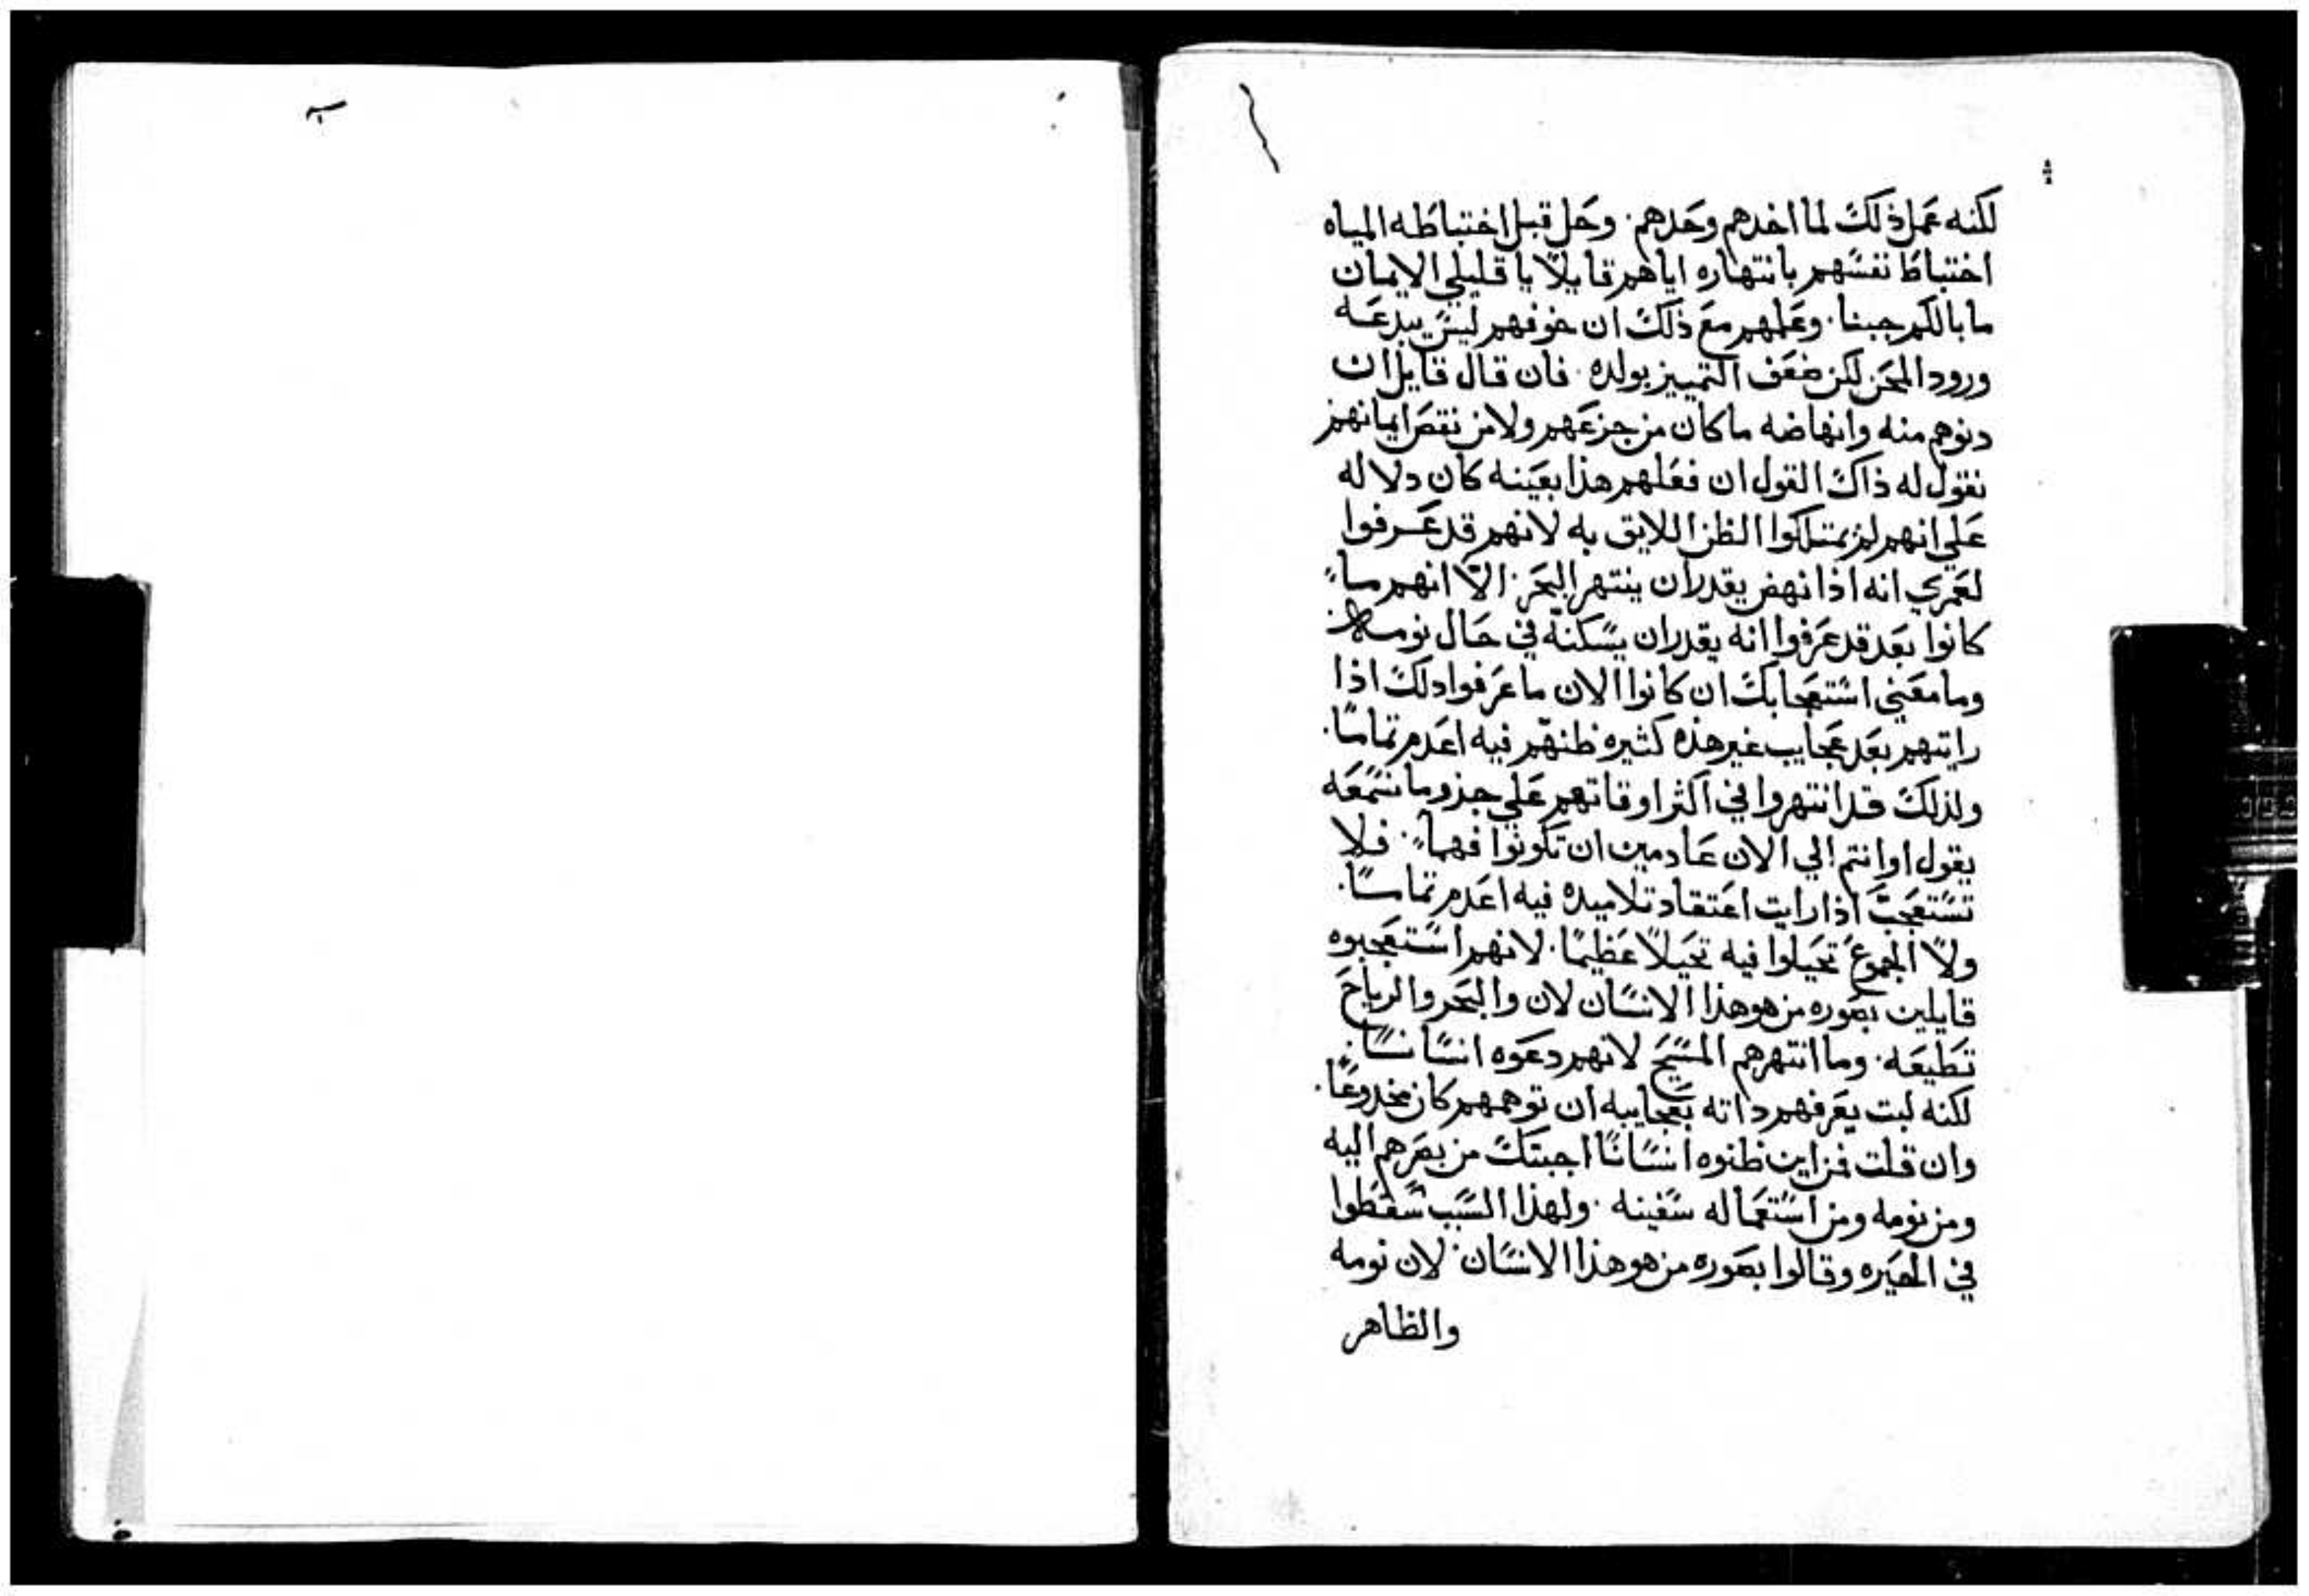 لكنه عمل ذلك لما اخدهم وحدهم. وحل قبل اختباطه المياه
اختباط نفسهم بانتهاره اياهم قايلًا يا قليلي الايمان
ما بالكم جبنا. وعلمهم مع ذلك ان خوفهم ليس يبدعه
ورود المحن لكن ضعف التمييز يولده. فان قال قايل ان
دنوهم منه وانهاضه ما كان من جزعهم ولا من نقص ايمانهم
نقول له ذاك القول ان فعلهم هذا بعينه كان دلاله
علي انهم لم يمتلكوا الظن اللايق به لانهم قد عرفوا
لعمري انه اذا نهض يقدر ان ينتهر البحر. الّا انهم ما
كانوا بعد قد عرفوا انه يقدر ان يسكنه في حال نومه
وما معني استعجابك ان كانوا الان ما عرفوا دلك اذا
رايتهم بعد عجايب غير هذه كثيره ظنهم فيه اعدم تمامًا.
ولذلك قد انتهروا في اكثر اوقاتهم علي حذو ما نسمعه
يقول او انتم الي الان عادمين ان تكونوا فهما. فلا
تستعجب اذا رايت اعتقاد تلاميده فيه اعدم تمامًا.
ولا الجموع تخيلوا فيه تخيلًا عظيمًا. لانهم استعجبوه
قايلين بصوره من هو هذا الانسان لان والبحر والرياح
تطيعه. وما انتهرهم المسيح لانهم دعوه انسانًا.
لكنه لبت يعرفهم داته بعجايبه ان توهمهم كان مخدوعًا.
وان قلت فمن اين ظنوه انسانًا اجبتك من بصرهم اليه
ومن نومه ومن استعماله سفينه. ولهذا السبب سقطوا
في الحيره وقالوا بصوره من هو هذا الانسان. لان نومه
والظاهر